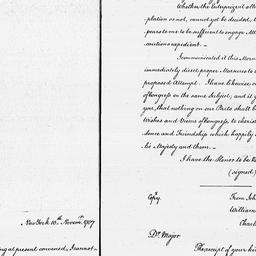 Whether the Enterprize atte
plation or not, cannot yet be decided, t
pears to me to be sufficient to engage Att
cautions expedient. —
I communicated it this Morn
immediately direct proper Measures to
proposed Attempt. I have likewise
of Congress on the same Subject; and it g
you, that nothing on our Parts shall b
Wishes and Views of Congress, to cherish
dence and Friendship which happily
his Majesty and them. —
I have the Honor to be &
(signed)
Copy.
From John
William
Charl
New York 10th Novemr. 1787
Dr. Major
The receipt of your kin
ing at present convened, I cannot